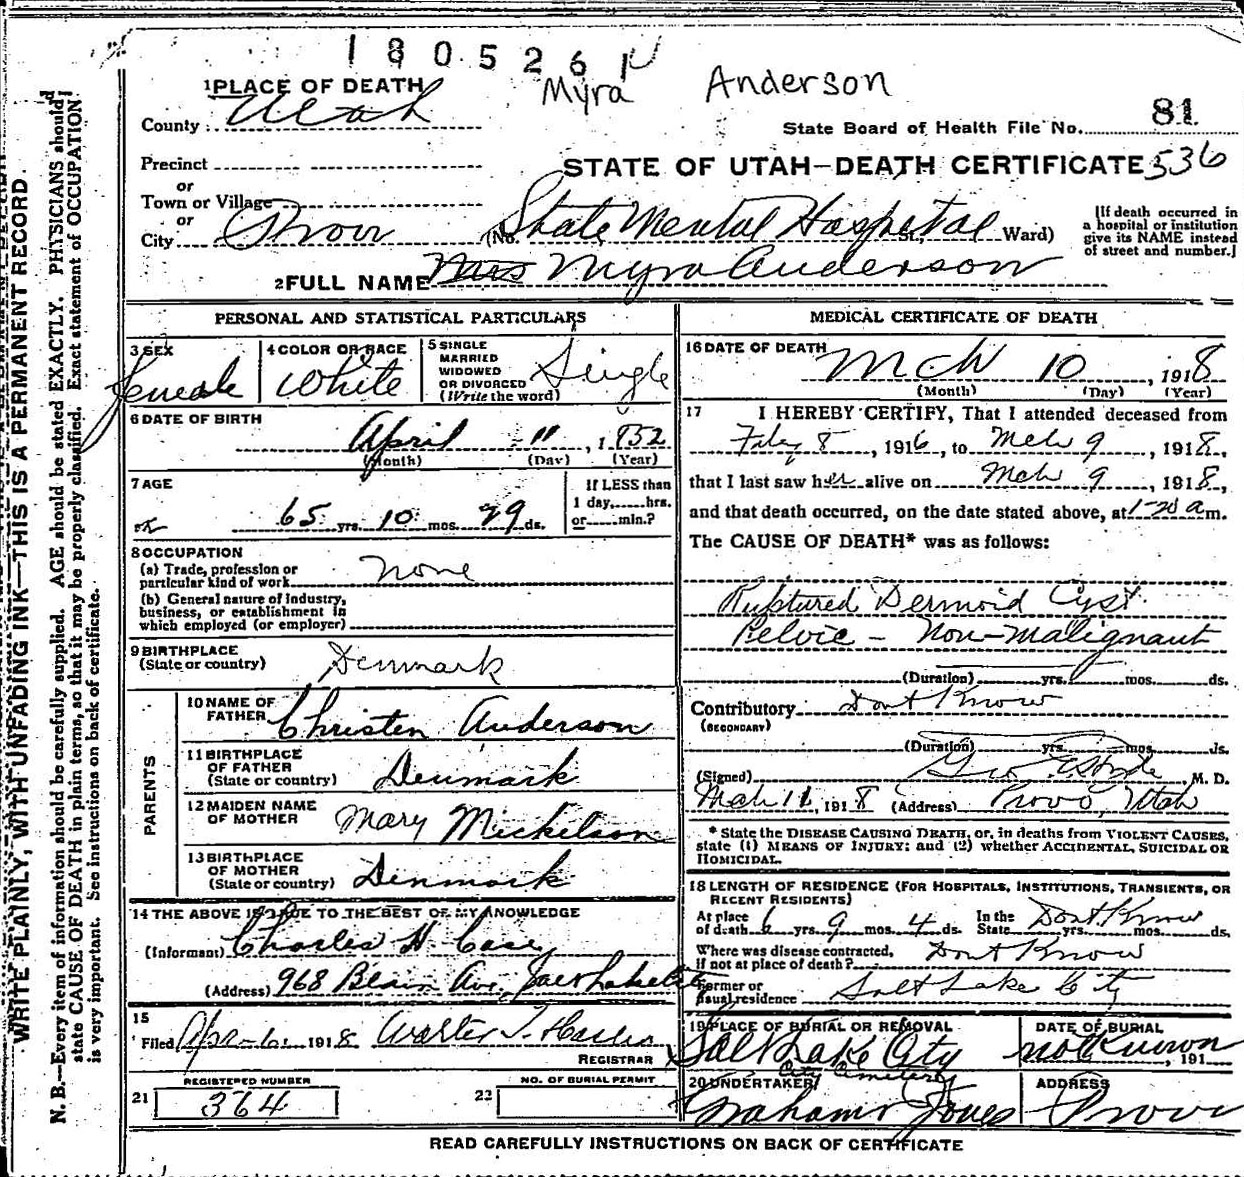 1805261
Myra Anderson
1 PLACE OF DEATH
County Utah
State Board of Health File No. 81
Precinct
STATE OF UTAH—DEATH CERTIFICATE 536
or
Town or Village
or
City Provo (No. State Mental Hospital St., Ward)
[If death occurred in a hospital or institution give its NAME instead of street and number.]
2 FULL NAME Miss Myra Anderson
PERSONAL AND STATISTICAL PARTICULARS
3 SEX Female
4 COLOR OR RACE White
5 SINGLE MARRIED WIDOWED OR DIVORCED (Write the word) Single
6 DATE OF BIRTH
April 11, 1852
(Month) (Day) (Year)
7 AGE
65 yrs. 10 mos. 29 ds.
If LESS than 1 day, hrs. or min.?
8 OCCUPATION
(a) Trade, profession or particular kind of work None
(b) General nature of industry, business, or establishment in which employed (or employer)
9 BIRTHPLACE
(State or country) Denmark
PARENTS
10 NAME OF FATHER Christen Anderson
11 BIRTHPLACE OF FATHER (State or country) Denmark
12 MAIDEN NAME OF MOTHER Mary Mickelson
13 BIRTHPLACE OF MOTHER (State or country) Denmark
14 THE ABOVE IS TRUE TO THE BEST OF MY KNOWLEDGE
(Informant) Charles H Casey
(Address) 968 Blain Av. Salt Lake City
15
Filed Apr-6. 1918 Walter T. Hasler
REGISTRAR
REGISTERED NUMBER
21 364
NO. OF BURIAL PERMIT
22
MEDICAL CERTIFICATE OF DEATH
16 DATE OF DEATH Mch 10, 1918
(Month) (Day) (Year)
17 I HEREBY CERTIFY, That I attended deceased from
Feby 8, 1916, to Mch 9, 1918,
that I last saw her alive on Mch 9, 1918,
and that death occurred, on the date stated above, at 1-20 a m.
The CAUSE OF DEATH* was as follows:
Ruptured Dermoid Cyst
Pelvic - Non-malignant
(Duration) yrs. mos. ds.
Contributory Dont Know
(SECONDARY)
(Duration) yrs. mos. ds.
(Signed) Geo E Hyde, M. D.
Mch 11, 1918 (Address) Provo, Utah
* State the DISEASE CAUSING DEATH, or, in deaths from VIOLENT CAUSES, state (1) MEANS OF INJURY; and (2) whether ACCIDENTAL, SUICIDAL OR HOMICIDAL.
18 LENGTH OF RESIDENCE (FOR HOSPITALS, INSTITUTIONS, TRANSIENTS, OR RECENT RESIDENTS)
At place of death 6 yrs 9 mos. 4 ds. In the State Dont Know yrs. mos. ds.
Where was disease contracted, if not at place of death? Dont Know
Former or usual residence Salt Lake City
19 PLACE OF BURIAL OR REMOVAL Salt Lake City
City Cemetery
DATE OF BURIAL not Known, 191
20 UNDERTAKER Graham & Jones
ADDRESS Provo
READ CAREFULLY INSTRUCTIONS ON BACK OF CERTIFICATE
WRITE PLAINLY, WITH UNFADING INK—THIS IS A PERMANENT RECORD.
N. B.—Every item of information should be carefully supplied. AGE should be stated EXACTLY. PHYSICIANS should
state CAUSE OF DEATH in plain terms, so that it may be properly classified. Exact statement of OCCUPATION
is very important. See instructions on back of certificate.